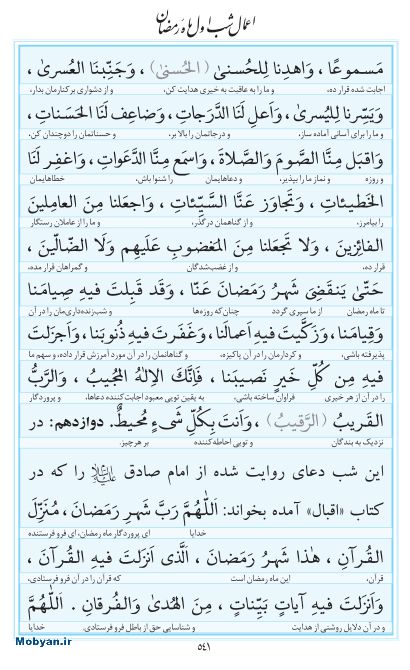 اعمال شب اول ماه رمضان
مَسموعًا ، وَاهدِنا لِلحُسنىٰ (الحُسنىٰ) ، وَجَنِّبنَا العُسرىٰ ،
اجابت شده قرار ده، و ما را به عاقبت به خیری هدایت کن، و از دشواری برکنارمان بدار،
وَيَسِّرنا لِليُسرىٰ ، وَاَعلِ لَنَا الدَّرَجاتِ ، وَضاعِف لَنَا الحَسَناتِ ،
و ما را برای آسانی آماده ساز، و درجاتمان را بالا بر، و حسناتمان را دوچندان کن،
وَاقبَل مِنَّا الصَّومَ وَالصَّلاةَ ، وَاسمَع مِنَّا الدَّعَواتِ ، وَاغفِر لَنَا
و روزه و نماز ما را بپذیر، و دعاهایمان را شنوا باش، خطاهایمان
الخَطيئاتِ ، وَتَجاوَز عَنَّا السَّيِّئاتِ ، وَاجعَلنا مِنَ العامِلينَ
را بیامرز، و از گناهمان درگذر، و ما را از عاملان رستگار
الفائِزينَ ، وَلا تَجعَلنا مِنَ المَغضوبِ عَلَيهِم وَلَا الضّالّينَ ،
قرار ده، و از غضب‌شدگان و گمراهان قرار مده،
حَتّىٰ يَنقَضِىَ شَهرُ رَمَضانَ عَنّا ، وَقَد قَبِلتَ فيهِ صِيامَنا
تا ماه رمضان از ما سپری گردد چنان‌که روزه‌ها و شب‌زنده‌داری‌مان را در آن
وَقِيامَنا، وَزَكَّيتَ فيهِ اَعمالَنا، وَغَفَرتَ فيهِ ذُنوبَنا، وَاَجزَلتَ
پذیرفته باشی، و کردارمان را در آن پاکیزه، و گناهانمان را در آن مورد آمرزش قرار داده، و سهم ما
فيهِ مِن كُلِّ خَيرٍ نَصيبَنا ، فَاِنَّكَ الاِلٰهُ المُجيبُ ، وَالرَّبُّ
را در آن از هر خیری فراوان ساخته باشی، به یقین تویی معبود اجابت کننده دعاها، و پروردگار
القَريبُ (الرَّقيبُ) ، وَاَنتَ بِكُلِّ شَىءٍ مُحيطٌ. دوازدهم: در
نزدیک به بندگان و تویی احاطه‌کننده بر هرچیز.
این شب دعای روایت شده از امام صادق علیه‌السلام را که در
کتاب «اقبال» آمده بخواند: اَللّٰهُمَّ رَبَّ شَهرِ رَمَضانَ ، مُنَزِّلَ
خدایا ای پروردگار ماه رمضان، ای فرو فرستنده
القُرآنِ ، هٰذا شَهرُ رَمَضانَ ، اَلَّذى اَنزَلتَ فيهِ القُرآنَ ،
قرآن، این ماه رمضان است که قرآن را در آن فرو فرستادی،
وَاَنزَلتَ فيهِ آياتٍ بَيِّناتٍ ، مِنَ الهُدىٰ وَالفُرقانِ . اَللّٰهُمَّ
و در آن دلایل روشنی از هدایت و شناسایی حق از باطل فرو فرستادی. خدایا
Mobyan.ir
٥٤١